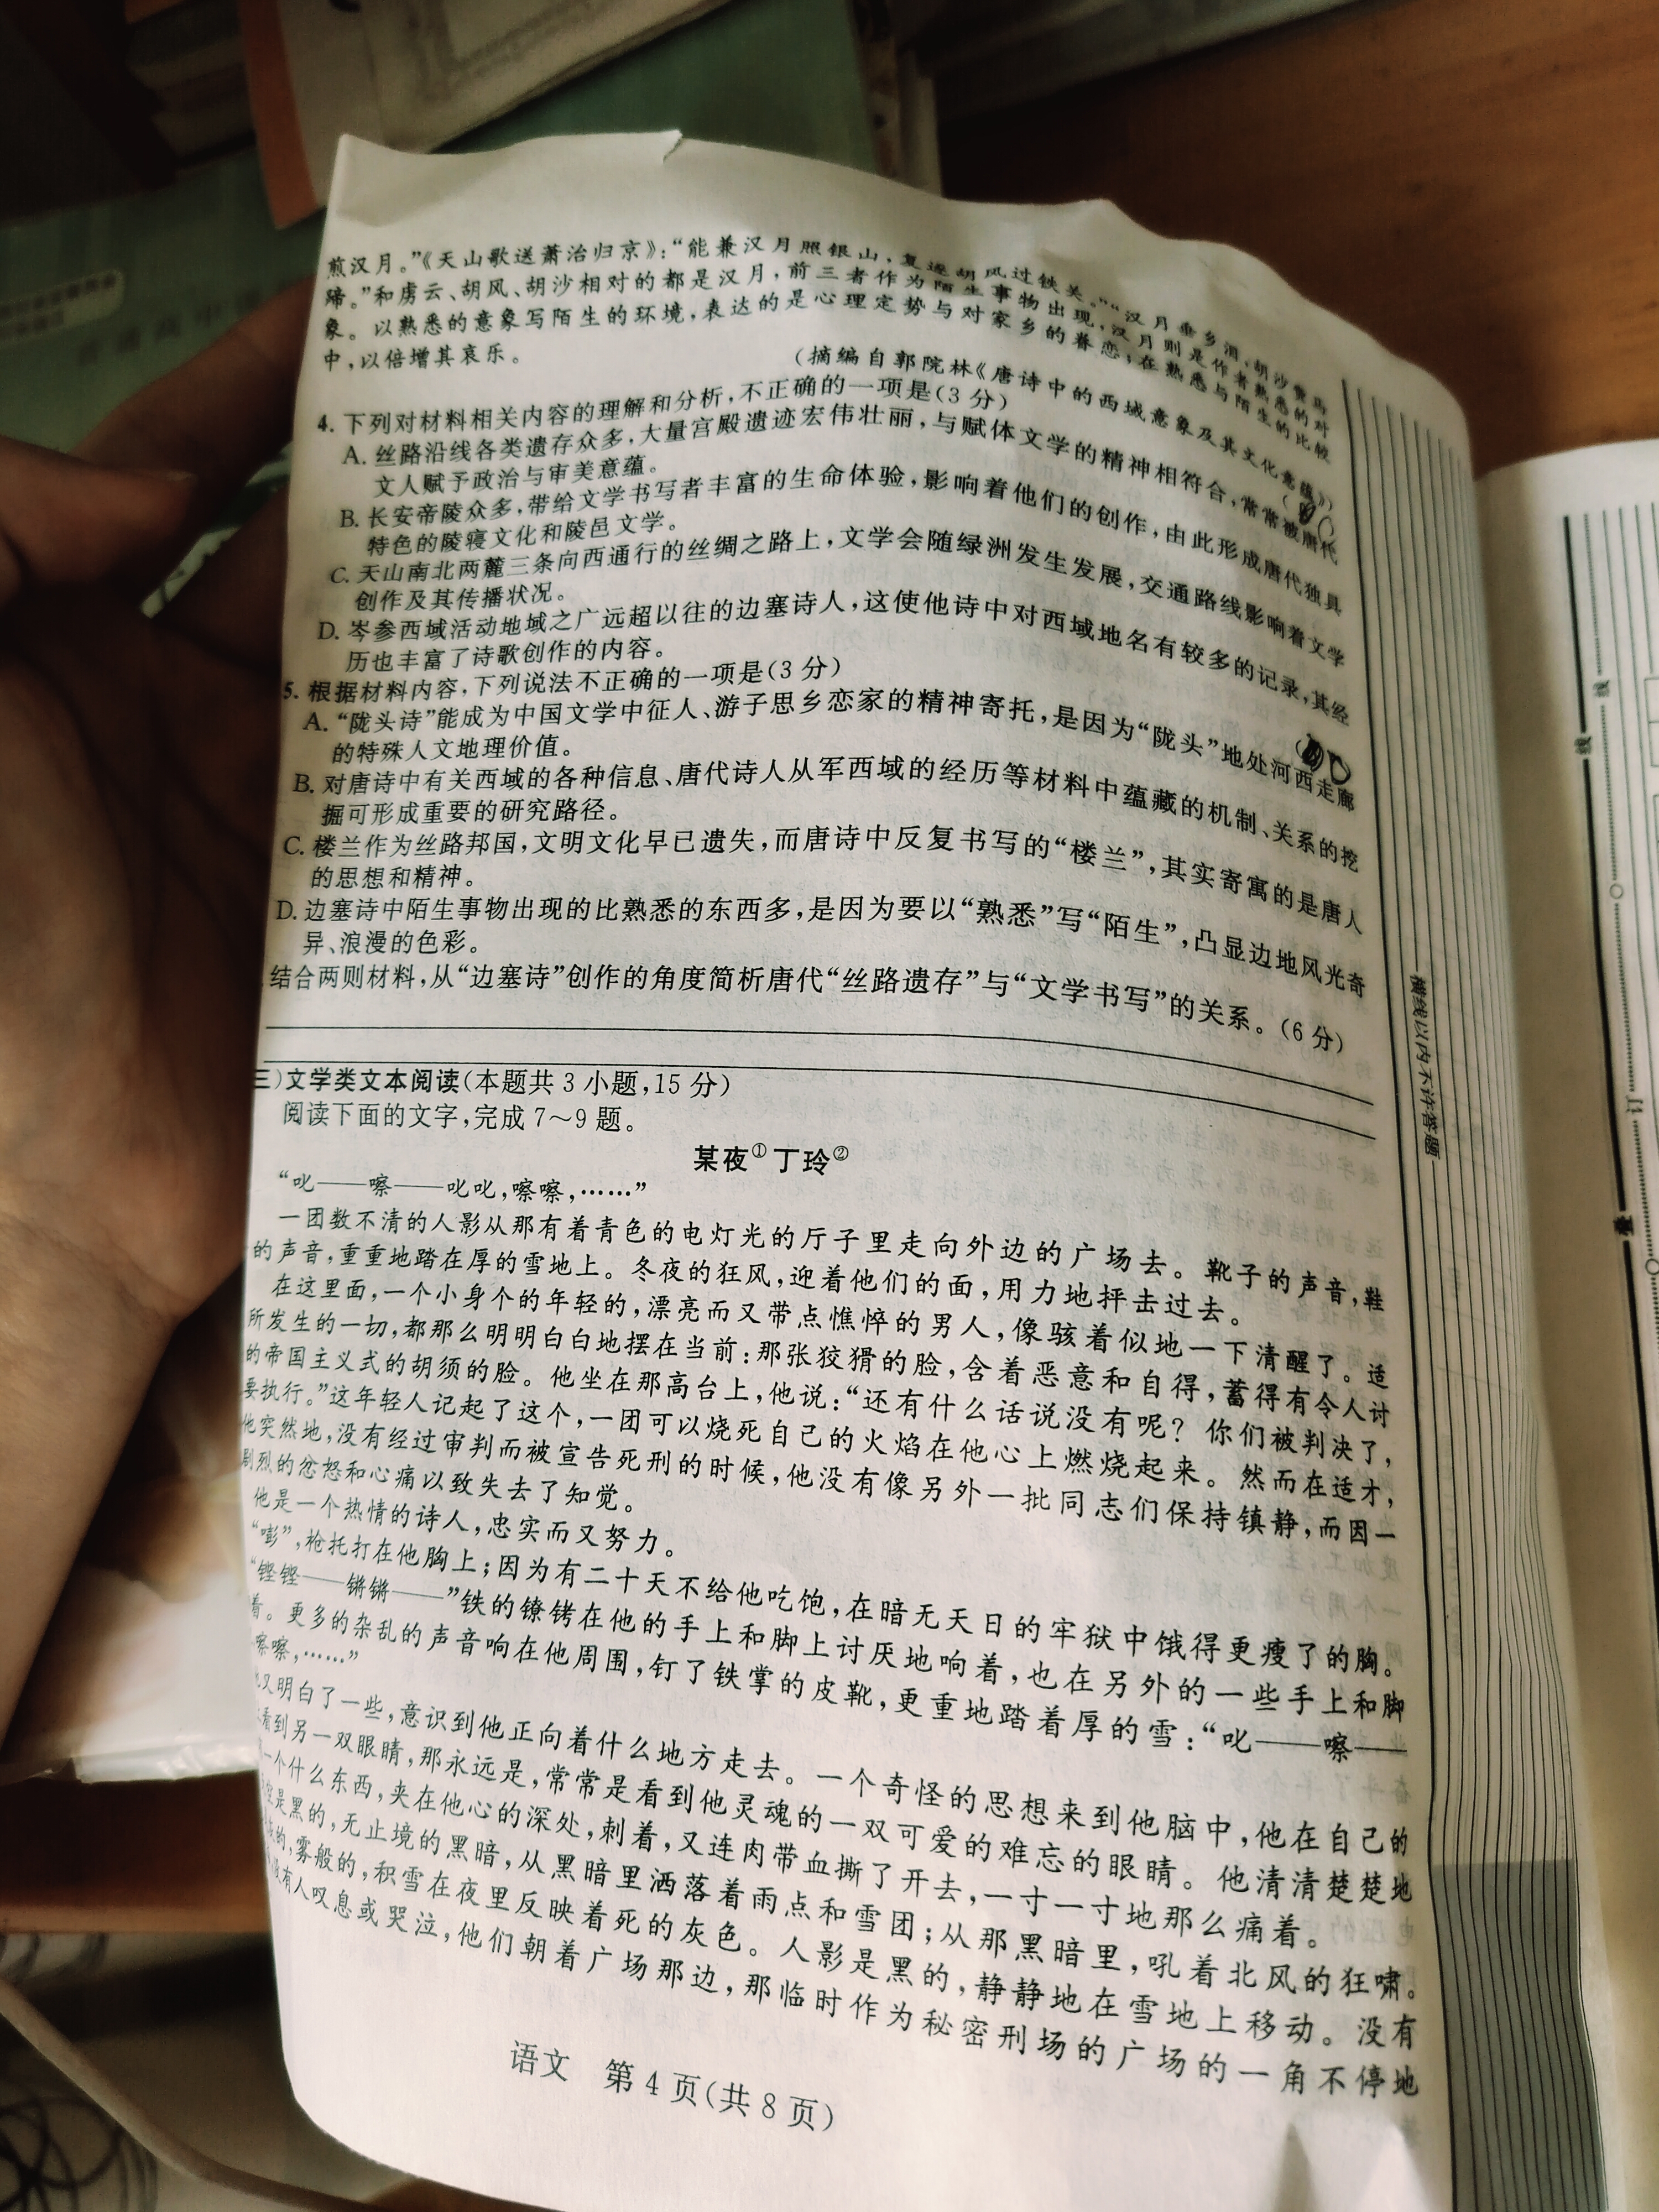 煎汉月。”《天山歌送萧治归京》：“能兼汉月照银山，复逐胡风过铁关。”“汉月垂乡泪，胡沙费马
蹄。”和虏云、胡风、胡沙相对的都是汉月，前三者作为陌生事物出现，汉月则是作者熟悉的对
象。以熟悉的意象写陌生的环境，表达的是心理定势与对家乡的眷恋；在熟悉与陌生的比较
中，以倍增其哀乐。
（摘编自郭院林《唐诗中的西域意象及其文化意蕴》）
4. 下列对材料相关内容的理解和分析，不正确的一项是（3 分）
A. 丝路沿线各类遗存众多，大量宫殿遗迹宏伟壮丽，与赋体文学的精神相符合，常常被唐代
文人赋予政治与审美意蕴。
B. 长安帝陵众多，带给文学书写者丰富的生命体验，影响着他们的创作，由此形成唐代独具
特色的陵寝文化和陵邑文学。
C. 天山南北两麓三条向西通行的丝绸之路上，文学会随绿洲发生发展，交通路线影响着文学
创作及其传播状况。
D. 岑参西域活动地域之广远超以往的边塞诗人，这使他诗中对西域地名有较多的记录，其经
历也丰富了诗歌创作的内容。
5. 根据材料内容，下列说法不正确的一项是（3 分）
A. “陇头诗”能成为中国文学中征人、游子思乡恋家的精神寄托，是因为“陇头”地处河西走廊
的特殊人文地理价值。
B. 对唐诗中有关西域的各种信息、唐代诗人从军西域的经历等材料中蕴藏的机制、关系的挖
掘可形成重要的研究路径。
C. 楼兰作为丝路邦国，文明文化早已遗失，而唐诗中反复书写的“楼兰”，其实寄寓的是唐人
的思想和精神。
D. 边塞诗中陌生事物出现的比熟悉的东西多，是因为要以“熟悉”写“陌生”，凸显边地风光奇
异、浪漫的色彩。
结合两则材料，从“边塞诗”创作的角度简析唐代“丝路遗存”与“文学书写”的关系。（6 分）
三）文学类文本阅读（本题共 3 小题，15 分）
阅读下面的文字，完成 7～9 题。
某夜① 丁玲②
“叱——嚓——叱叱，嚓嚓，……”
一团数不清的人影从那有着青色的电灯光的厅子里走向外边的广场去。靴子的声音，鞋
的声音，重重地踏在厚的雪地上。冬夜的狂风，迎着他们的面，用力地抨击过去。
在这里面，一个小身个的年轻的，漂亮而又带点憔悴的男人，像骇着似地一下清醒了。适
所发生的一切，都那么明明白白地摆在当前：那张狡猾的脸，含着恶意和自得，蓄得有令人讨
的帝国主义式的胡须的脸。他坐在那高台上，他说：“还有什么话说没有呢？你们被判决了，
要执行。”这年轻人记起了这个，一团可以烧死自己的火焰在他心上燃烧起来。然而在适才，
他突然地，没有经过审判而被宣告死刑的时候，他没有像另外一批同志们保持镇静，而因一
剧烈的忿怒和心痛以致失去了知觉。
他是一个热情的诗人，忠实而又努力。
“嘭”，枪托打在他胸上；因为有二十天不给他吃饱，在暗无天日的牢狱中饿得更瘦了的胸。
“铿铿——锵锵——”铁的镣铐在他的手上和脚上讨厌地响着，也在另外的一些手上和脚
着。更多的杂乱的声音响在他周围，钉了铁掌的皮靴，更重地踏着厚的雪：“叱——嚓——
嚓嚓，……”
又明白了一些，意识到他正向着什么地方走去。一个奇怪的思想来到他脑中，他在自己的
看到另一双眼睛，那永远是，常常是看到他灵魂的一双可爱的难忘的眼睛。他清清楚楚地
一个什么东西，夹在他心的深处，刺着，又连肉带血撕了开去，一寸一寸地那么痛着。
是黑的，无止境的黑暗，从黑暗里洒落着雨点和雪团；从那黑暗里，吼着北风的狂啸。
的，雾般的，积雪在夜里反映着死的灰色。人影是黑的，静静地在雪地上移动。没有
没有人叹息或哭泣，他们朝着广场那边，那临时作为秘密刑场的广场的一角不停地
语文 第 4 页（共 8 页）
横线以内不许答题
线
线
订